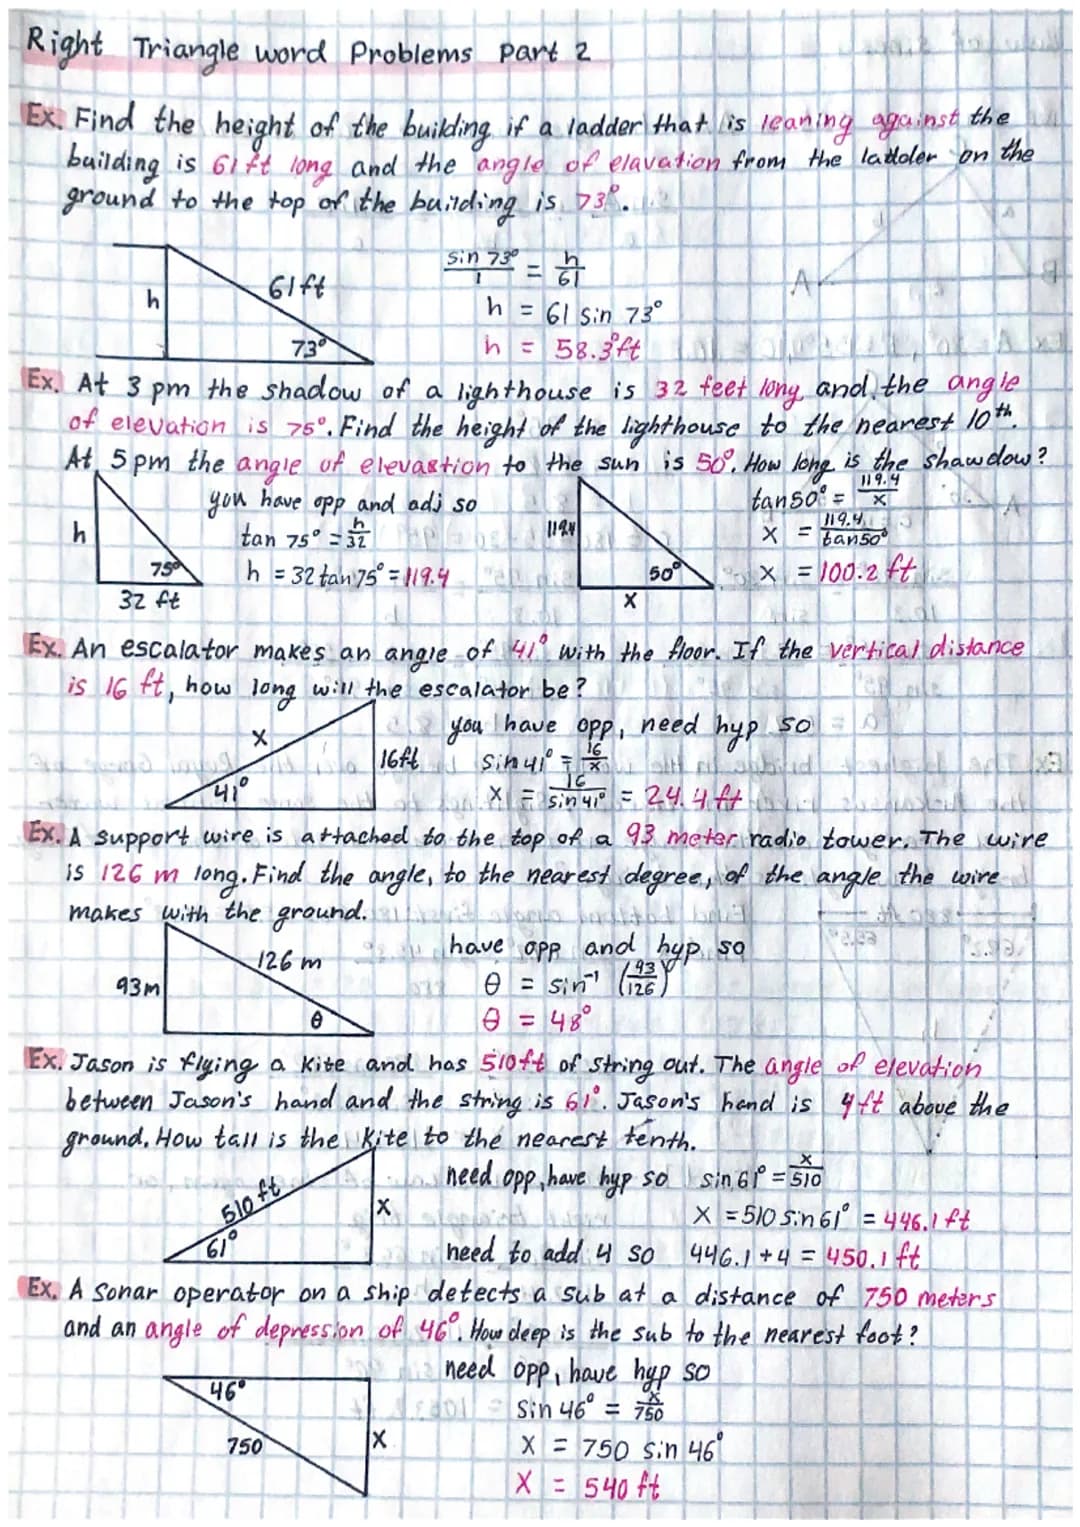 Right Triangle word Problems Part 2
Ex. Find the height of the building if a ladder that is leaning against the
building is 61 ft long and the angle of elavation from the ladder on the
ground to the top of the building is 73°.
61 ft
h
73°
sin 73°/1 = h/61
h = 61 sin 73°
h = 58.3 ft
Ex. At 3 pm the shadow of a lighthouse is 32 feet long and the angle
of elevation is 75°. Find the height of the lighthouse to the nearest 10th.
At 5 pm the angle of elevastion to the sun is 50°. How long is the shawdow?
h
75°
32 ft
you have opp and adj so
tan 75° = h/32
h = 32 tan 75° = 119.4
119.4
50°
x
tan 50° = 119.4/x
x = 119.4/tan 50°
x = 100.2 ft
Ex. An escalator makes an angle of 41° with the floor. If the vertical distance
is 16 ft, how long will the escalator be?
x
16ft
41°
you have opp, need hyp so
sin 41° = 16/x
x = 16/sin 41° = 24.4 ft
Ex. A support wire is attached to the top of a 93 meter radio tower. The wire
is 126 m long. Find the angle, to the nearest degree, of the angle the wire
makes with the ground.
126 m
93m
θ
have opp and hyp so
θ = sin⁻¹ (93/126)
θ = 48°
Ex. Jason is flying a kite and has 510ft of string out. The angle of elevation
between Jason's hand and the string is 61°. Jason's hand is 4ft above the
ground. How tall is the kite to the nearest tenth.
510 ft
x
61°
need opp, have hyp so sin 61° = x/510
x = 510 sin 61° = 446.1 ft
need to add 4 so 446.1 + 4 = 450.1 ft
Ex. A sonar operator on a ship detects a sub at a distance of 750 meters
and an angle of depression of 46°. How deep is the sub to the nearest foot?
46°
750
x
need opp, have hyp so
sin 46° = x/750
x = 750 sin 46°
x = 540 ft